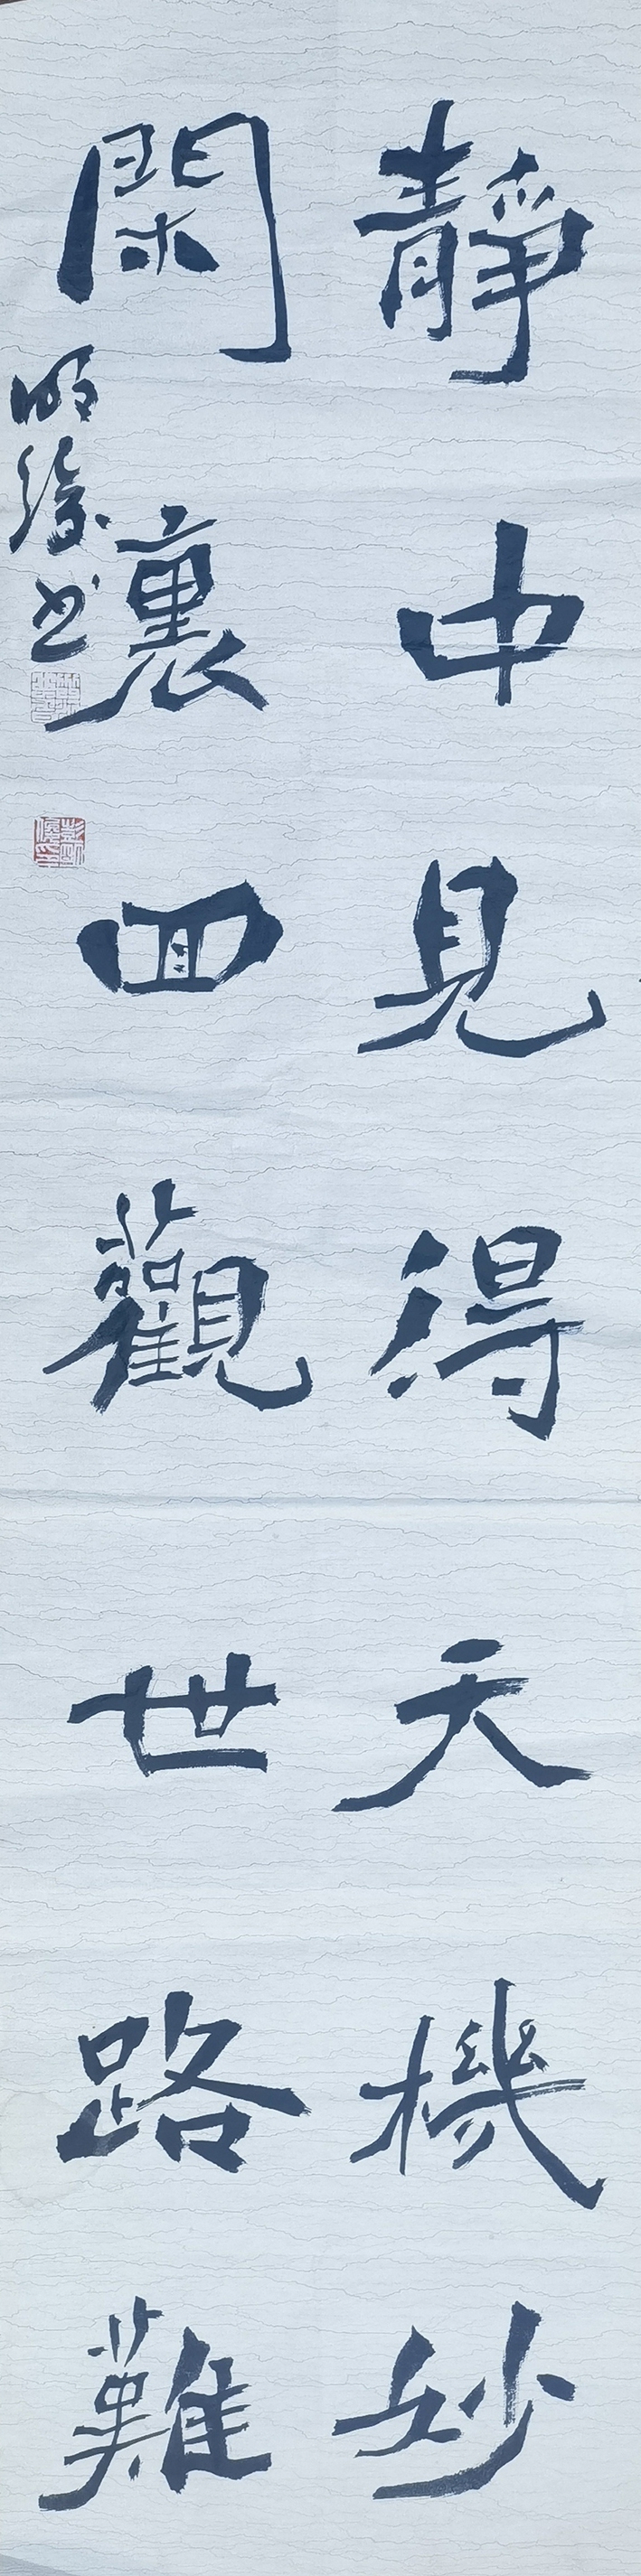 靜中見得天機妙
閑裏回觀世路難
明俊书